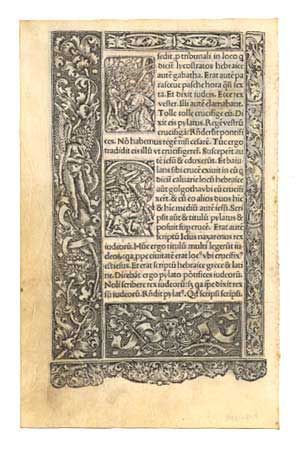 sedit p tribunali in loco q
dicit̄ lycostratos hebraice
autē gabatha. Erat autē pa
rasceue pasche hora q̄si sex
ta. Et dixit iudeis. Ecce rex
vester. Illi autē clamabant.
Tolle tolle crucifige eū. Dixit
eis pylatus. Regē vestrū
crucifigā: Rn̄derūt pontifi
ces. Nō habemus regē nisi cesarē. Tūc ergo
tradidit eis illū vt crucifigeret̄. Susceperūt
autē iesū & eduxerūt. Et baiu
lans sibi crucē exiuit in eū q
dicit̄ caluarie locū hebraice
aut golgotha: vbi eū crucifi
xerūt. & cū eo alios duos hic
& hic mediū autē iesū. Scri
psit aūt & titulū pylatus &
posuit sup crucē. Erat autē
scriptū Iesus nazarenus rex
iudeorū. Hūc ergo titulū multi legerūt iu
deorū: q̄a ppe ciuitatē erat loc⁹ vbi crucifix⁹
est iesus. Et erat scriptū hebraice grece & lati
ne. Dicebāt ergo pylato pōtifices iudeorū.
Noli scribere rex iudeorū: sȝ qa ipse dixit rex
sū iudeorū. Rn̄dit pylat⁹. Qd̄ scripsi scripsi.